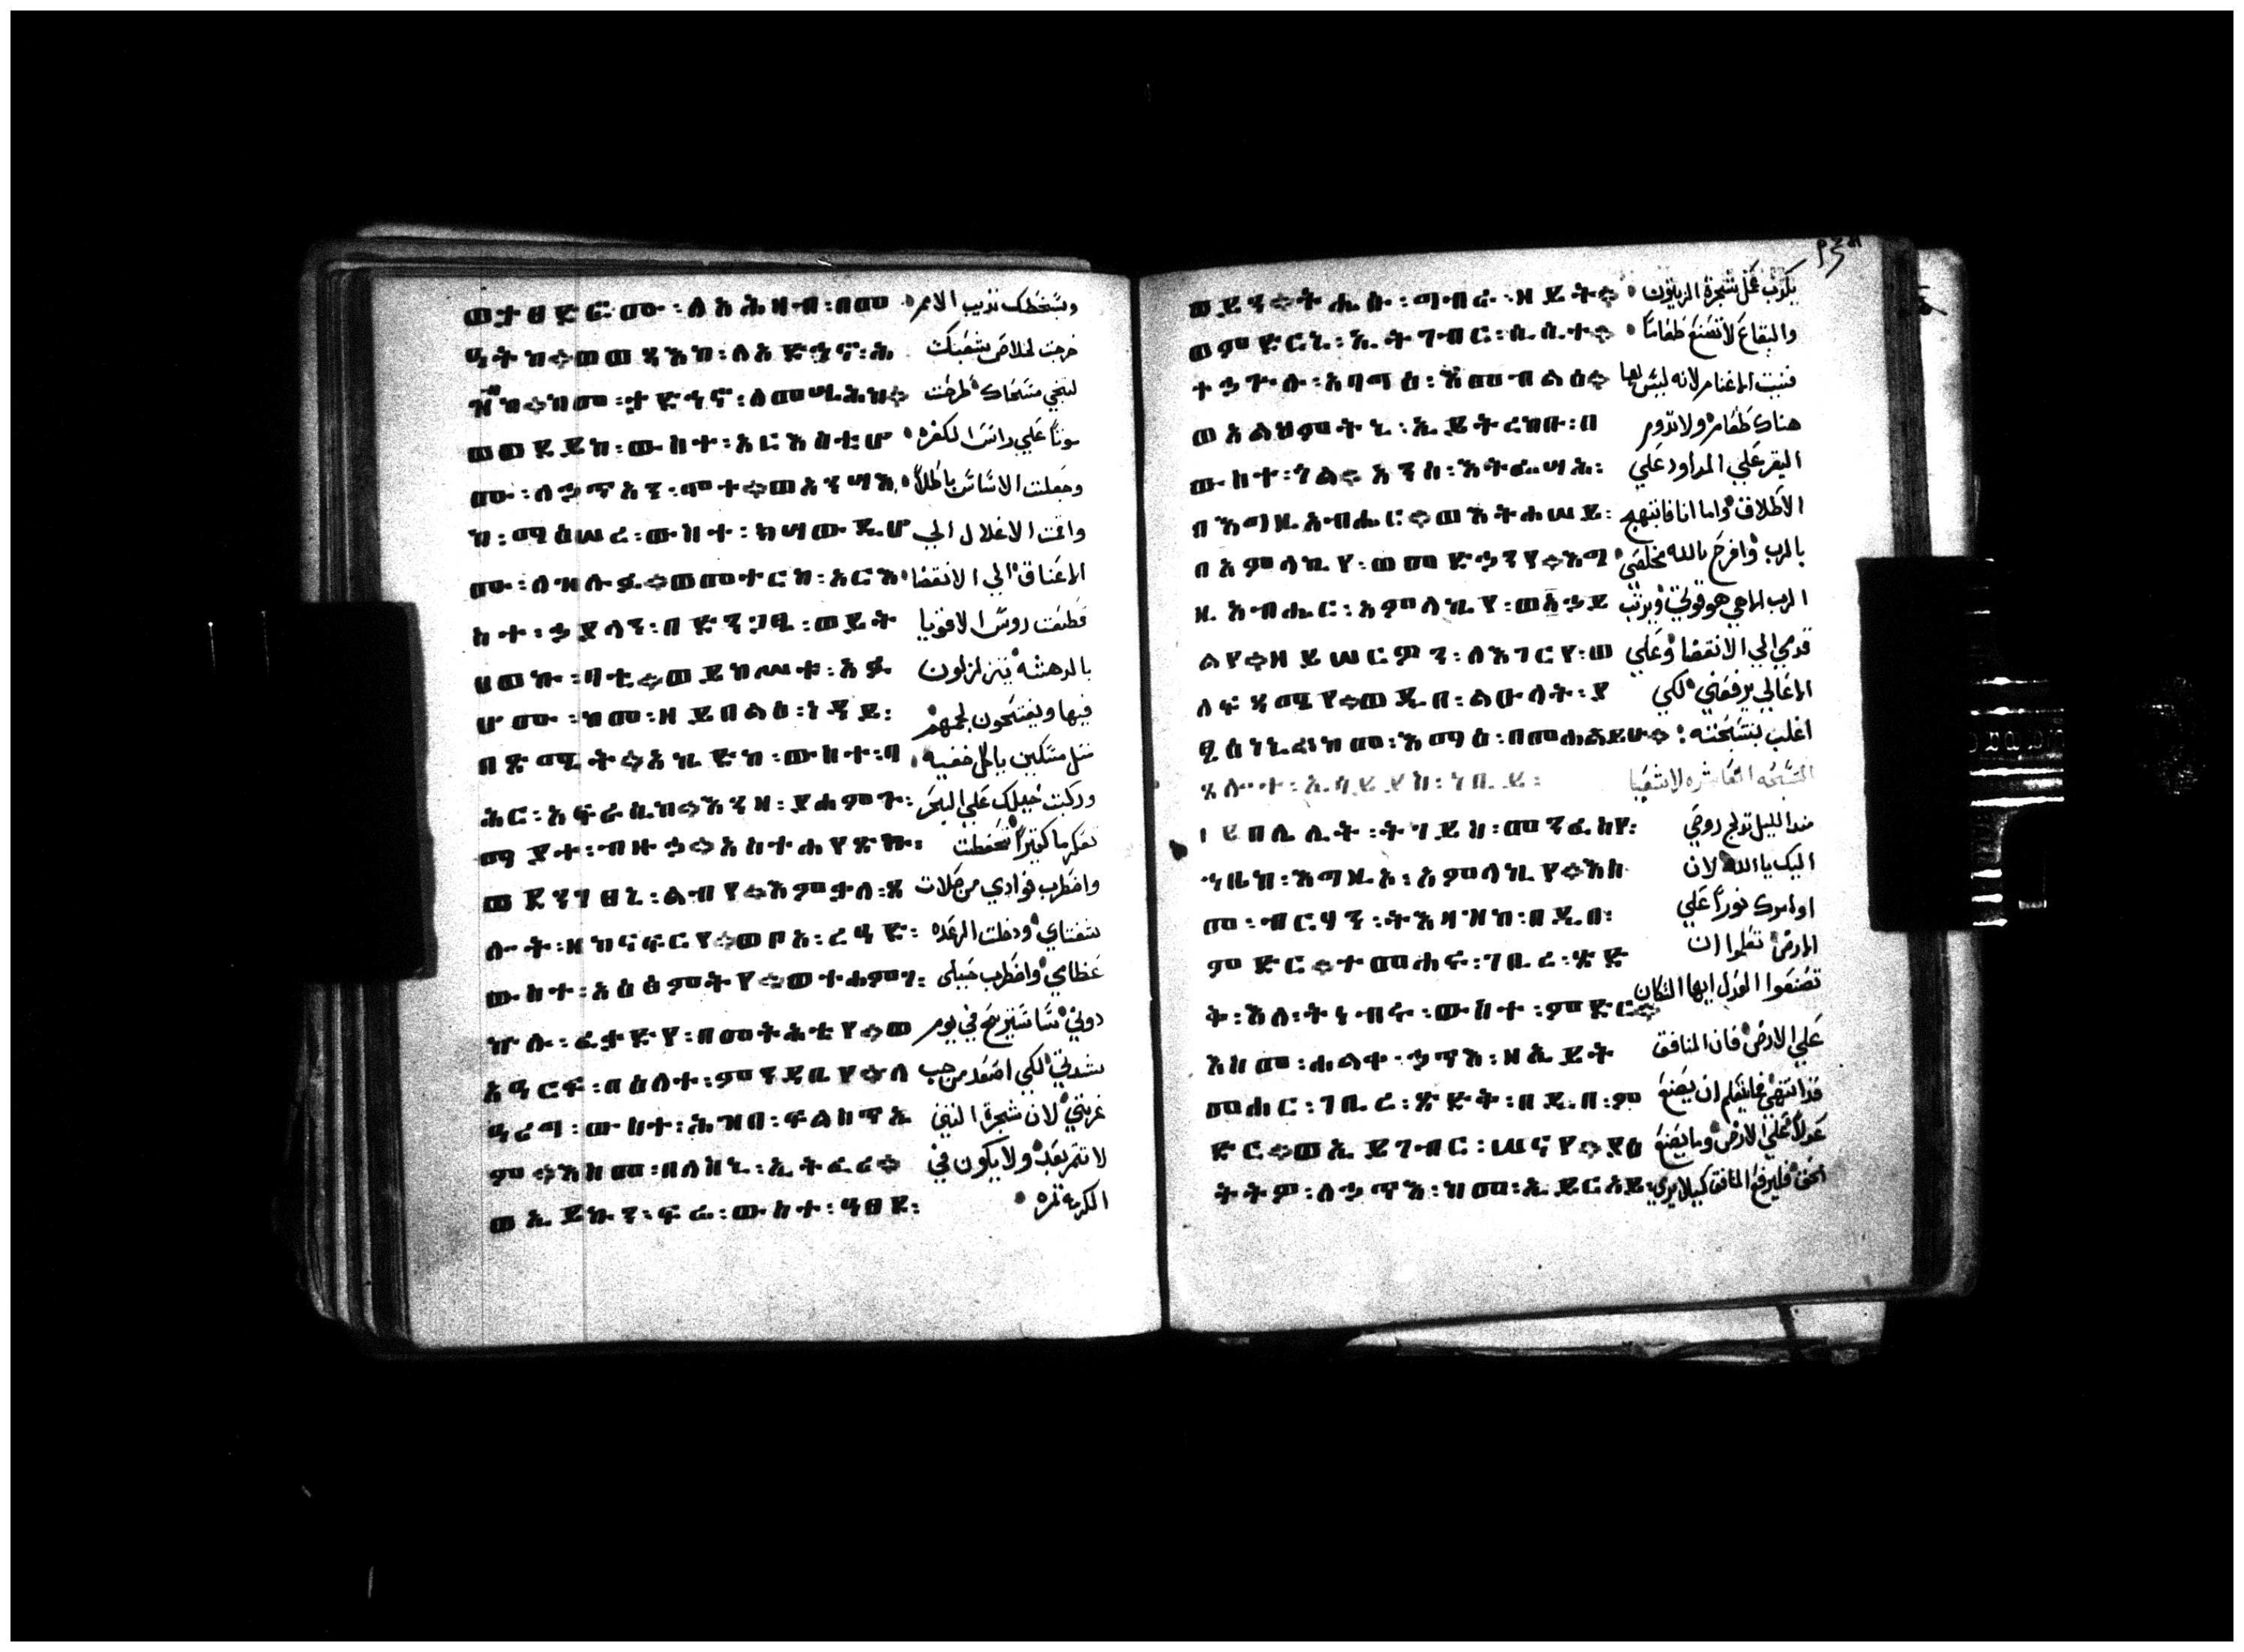 ወታፀድፎሙ፡ለአሕዛብ፡በመ وبسخطك تذيب الامم
ዓትከ።ወፃእከ፡ለአድኅኖ፡ሕ خرجت لخلاص شعبك
ዝብከ።ከመ፡ታድኅኖ፡ለመሢሕከ። لتنجي مسحاك طرحت
ወወደይከ፡ውስተ፡አርእስቲሆ موتا علي راس الكفره
ሙ፡ለኃጥአን፡ሞተ።ወአንሣእ وجعلت الاساس باطلا
ከ፡ማዕሠረ፡ውስተ፡ክሣውዲሆ واقمت الاغلال الي
ሙ፡ለዝሉፉ።ወመተርከ፡አርእ الاعناق الي الانقضا
ስተ፡ኃያላን፡በድንጋፄ፡ወይት قطعت روس الاقويا
ሀወኩ፡ባቲ።ወይከሥቱ፡አፉ بالدهشه يتزلزلون
ሆሙ፡ከመ፡ዘይበልዕ፡ነዳይ፡ فيها ويفتحون لجمهم
በጽሚት።አጊድከ፡ውስተ፡ባ مثل مسكين ياكل خفيه
ሕር፡አፍራሲከ።እንዘ፡ያሐምጉ፡ وركبت خيلك علي البحر
ማያተ፡ብዙኃ።አስተሐየጽኩ፡ تعكر ما كثيرا تحفظت
ወደንገፀኒ፡ልብየ።እምቃለ፡ጸ واضطرب فوادي من صلات
ሎት፡ዘከናፍርየ።ወቦአ፡ረዓድ፡ شفتاي ودخلت الرعده
ውስተ፡አዕፅምትየ።ወተሐምገ፡ عظامي واضطرب حبلى
ኵሉ፡ፈታድየ፡በመትሕቲየ።ወ دوني ساستريح في يوم
አዓርፍ፡በዕለተ፡ምንዳቤየ።ለ شدتي لكي اصعد من
ዓረማ፡ውስተ፡ሕዝበ፡ፍልስጥኤ غربتي لان شجرة التين
ም።እስመ፡በለስኒ፡ኢትፈሪ። لا تثمر بعد ولا يكون في
ወኢይኩን፡ፍሬ፡ውስተ፡ዓፀደ፡ الكرمه ثمره
ወይን።ትሔሱ፡ማብሬ፡ዘይት። يكذب عمل شجرة الزيتون
ወምድርኒ፡ኢትገብር፡ሲሲተ። والبقاع لا تصنع طعاما
ተኃጕሉ፡አባግዕ፡እመብልዕ። فنيت الاغنام لانه ليس لها
ወአልህምትኒ፡ኢይትረከቡ፡በ هناك طعام ولا تدوم
ውስተ፡ጎል።አንሰ፡እትፌሣሕ፡ البقر علي المداود علي
በእግዚአብሔር።ወእትሐሠይ፡ الاطلاق واما انا فابتهج
በአምላኪየ፡ወመድኃንየ።እግ بالرب وافرح بالله مخلصي
ዚአብሔር፡አምላኪየ፡ወአኃይ الرب الاهي هو قوتي ويرتب
ልየ።ዘይሠርዎን፡ለእገርየ፡ወ قدمي الي الانقضا وعلي
ለፍጻሜየ።ወዲበ፡ልዑላት፡ያ الاعالي يرفعني لكي
ዔዕገኒ፡ከመ፡እማዕ፡በመሐልይሁ። اغلب بتسبحته
ጸሎተ፡ኢሳይያስ፡ነቢይ፡ التسبحه العاشره لاشعيا
በሌሊት፡ትገይስ፡መንፈስየ፡ منذ الليل تدلج روحي
ኀቤከ፡እግዚአ፡አምላኪየ።እስ اليك يا الله لان
መ፡ብርሃን፡ትእዛዝከ፡በዲበ፡ اوامرك نورا علي
ምድር።ተመሐሩ፡ገቢረ፡ጽድ الارض تعلموا ان
ቅ፡እለ፡ትነብሩ፡ውስተ፡ምድር። تصنعوا العدل ايها السكان
እስመ፡ሐልቀ፡ኃጥእ፡ዘኢይት علي الارض فان المنافق
መሐር፡ገቢረ፡ጽድቅ፡በዲበ፡ም قد انتهي فما يتعلم ان يصنع
ድር።ወኢይገብር፡ሠናየ።ያዕ عدلا علي الارض وما يصنع
ትትዎ፡ለኃጥእ፡ከመ፡ኢይርአይ፡ الحق فليرفع المنافق كيلا يري